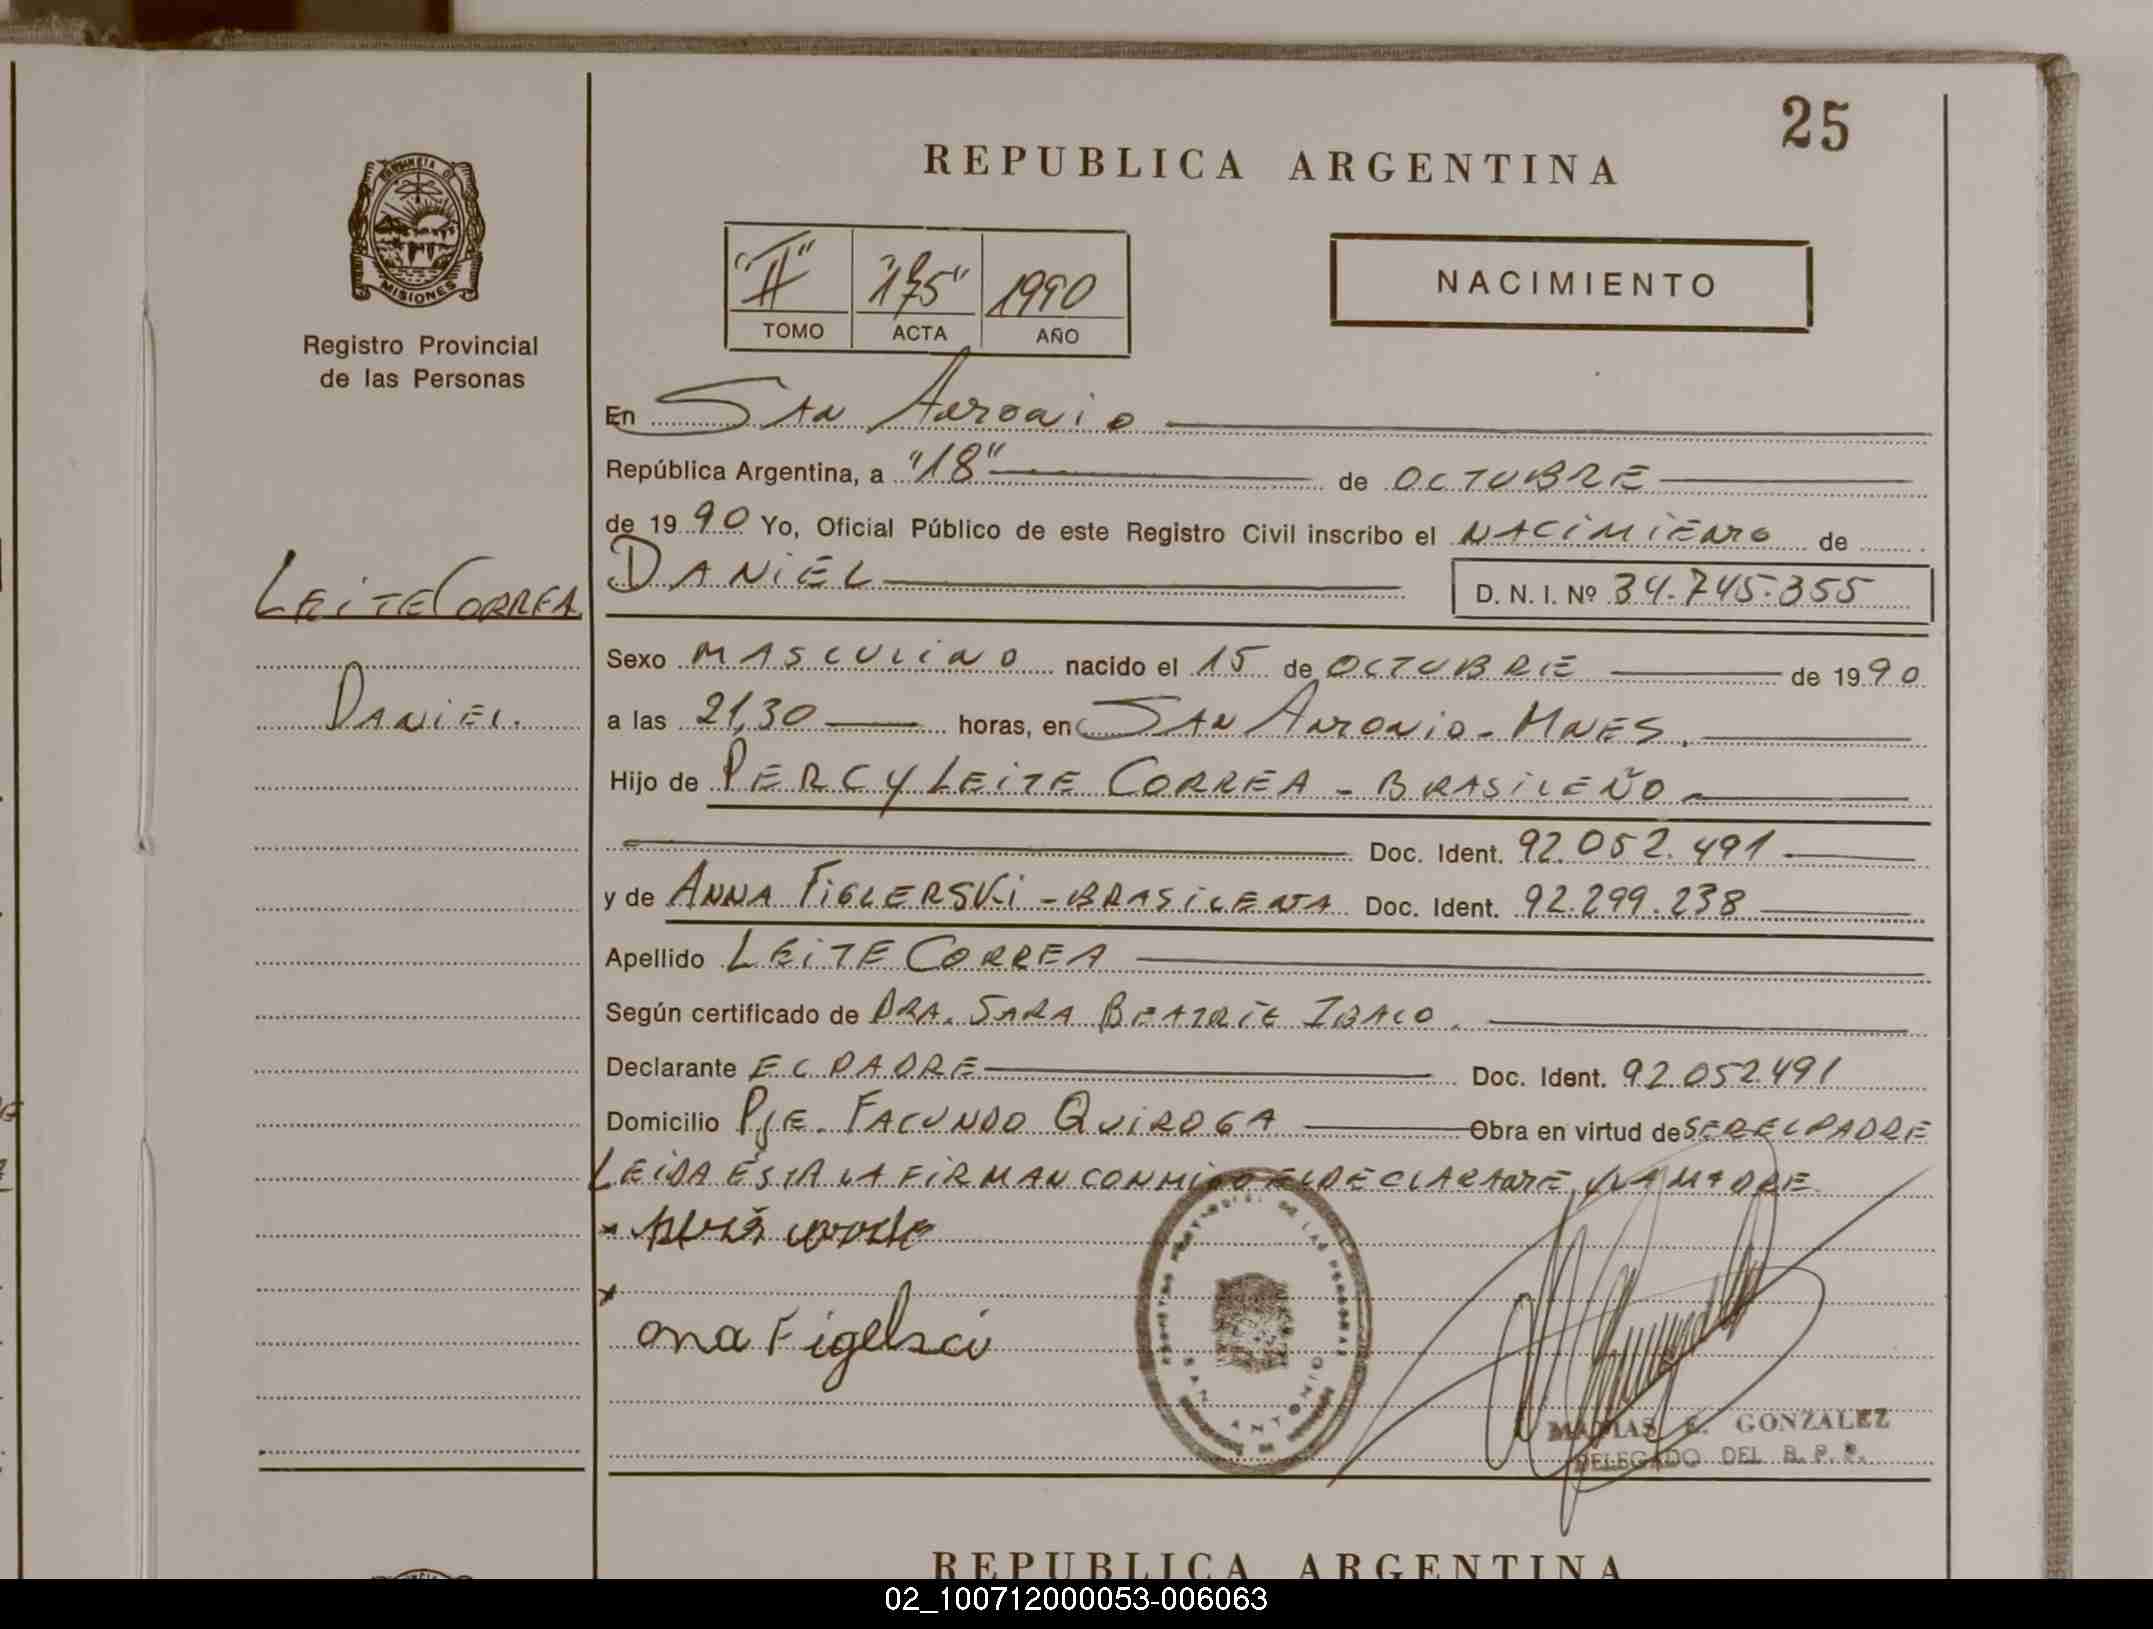 25
REPUBLICA ARGENTINA
PROVINCIA DE
MISIONES
Registro Provincial
de las Personas
"II" "175" 1990
TOMO ACTA AÑO
NACIMIENTO
En San Antonio
República Argentina, a "18" de OCTUBRE
de 1990 Yo, Oficial Público de este Registro Civil inscribo el NACIMIENTO de
LEITE CORREA
DANIEL D. N. I. Nº 34.745.355
Sexo MASCULINO nacido el 15 de OCTUBRE de 1990
DANIEL.
a las 21,30 horas, en SAN ANTONIO - MNES.
Hijo de PERCY LEITE CORREA - BRASILEÑO -
Doc. Ident. 92.052.491
y de ANNA FIGLERSKI - BRASILEÑA Doc. Ident. 92.299.238
Apellido LEITE CORREA
Según certificado de DRA. SARA BEATRIE
Declarante EL PADRE Doc. Ident. 92.052.491
Domicilio PJE. FACUNDO QUIROGA Obra en virtud de SER EL PADRE
LEIDA ESTA LA FIRMAN CONMIGO EL DECLARANTE Y LA MADRE
ona Figelsci
SAN ANTONIO
GONZALEZ
DELEGADO DEL R. P. P.
REPUBLICA ARGENTINA
02_100712000053-006063